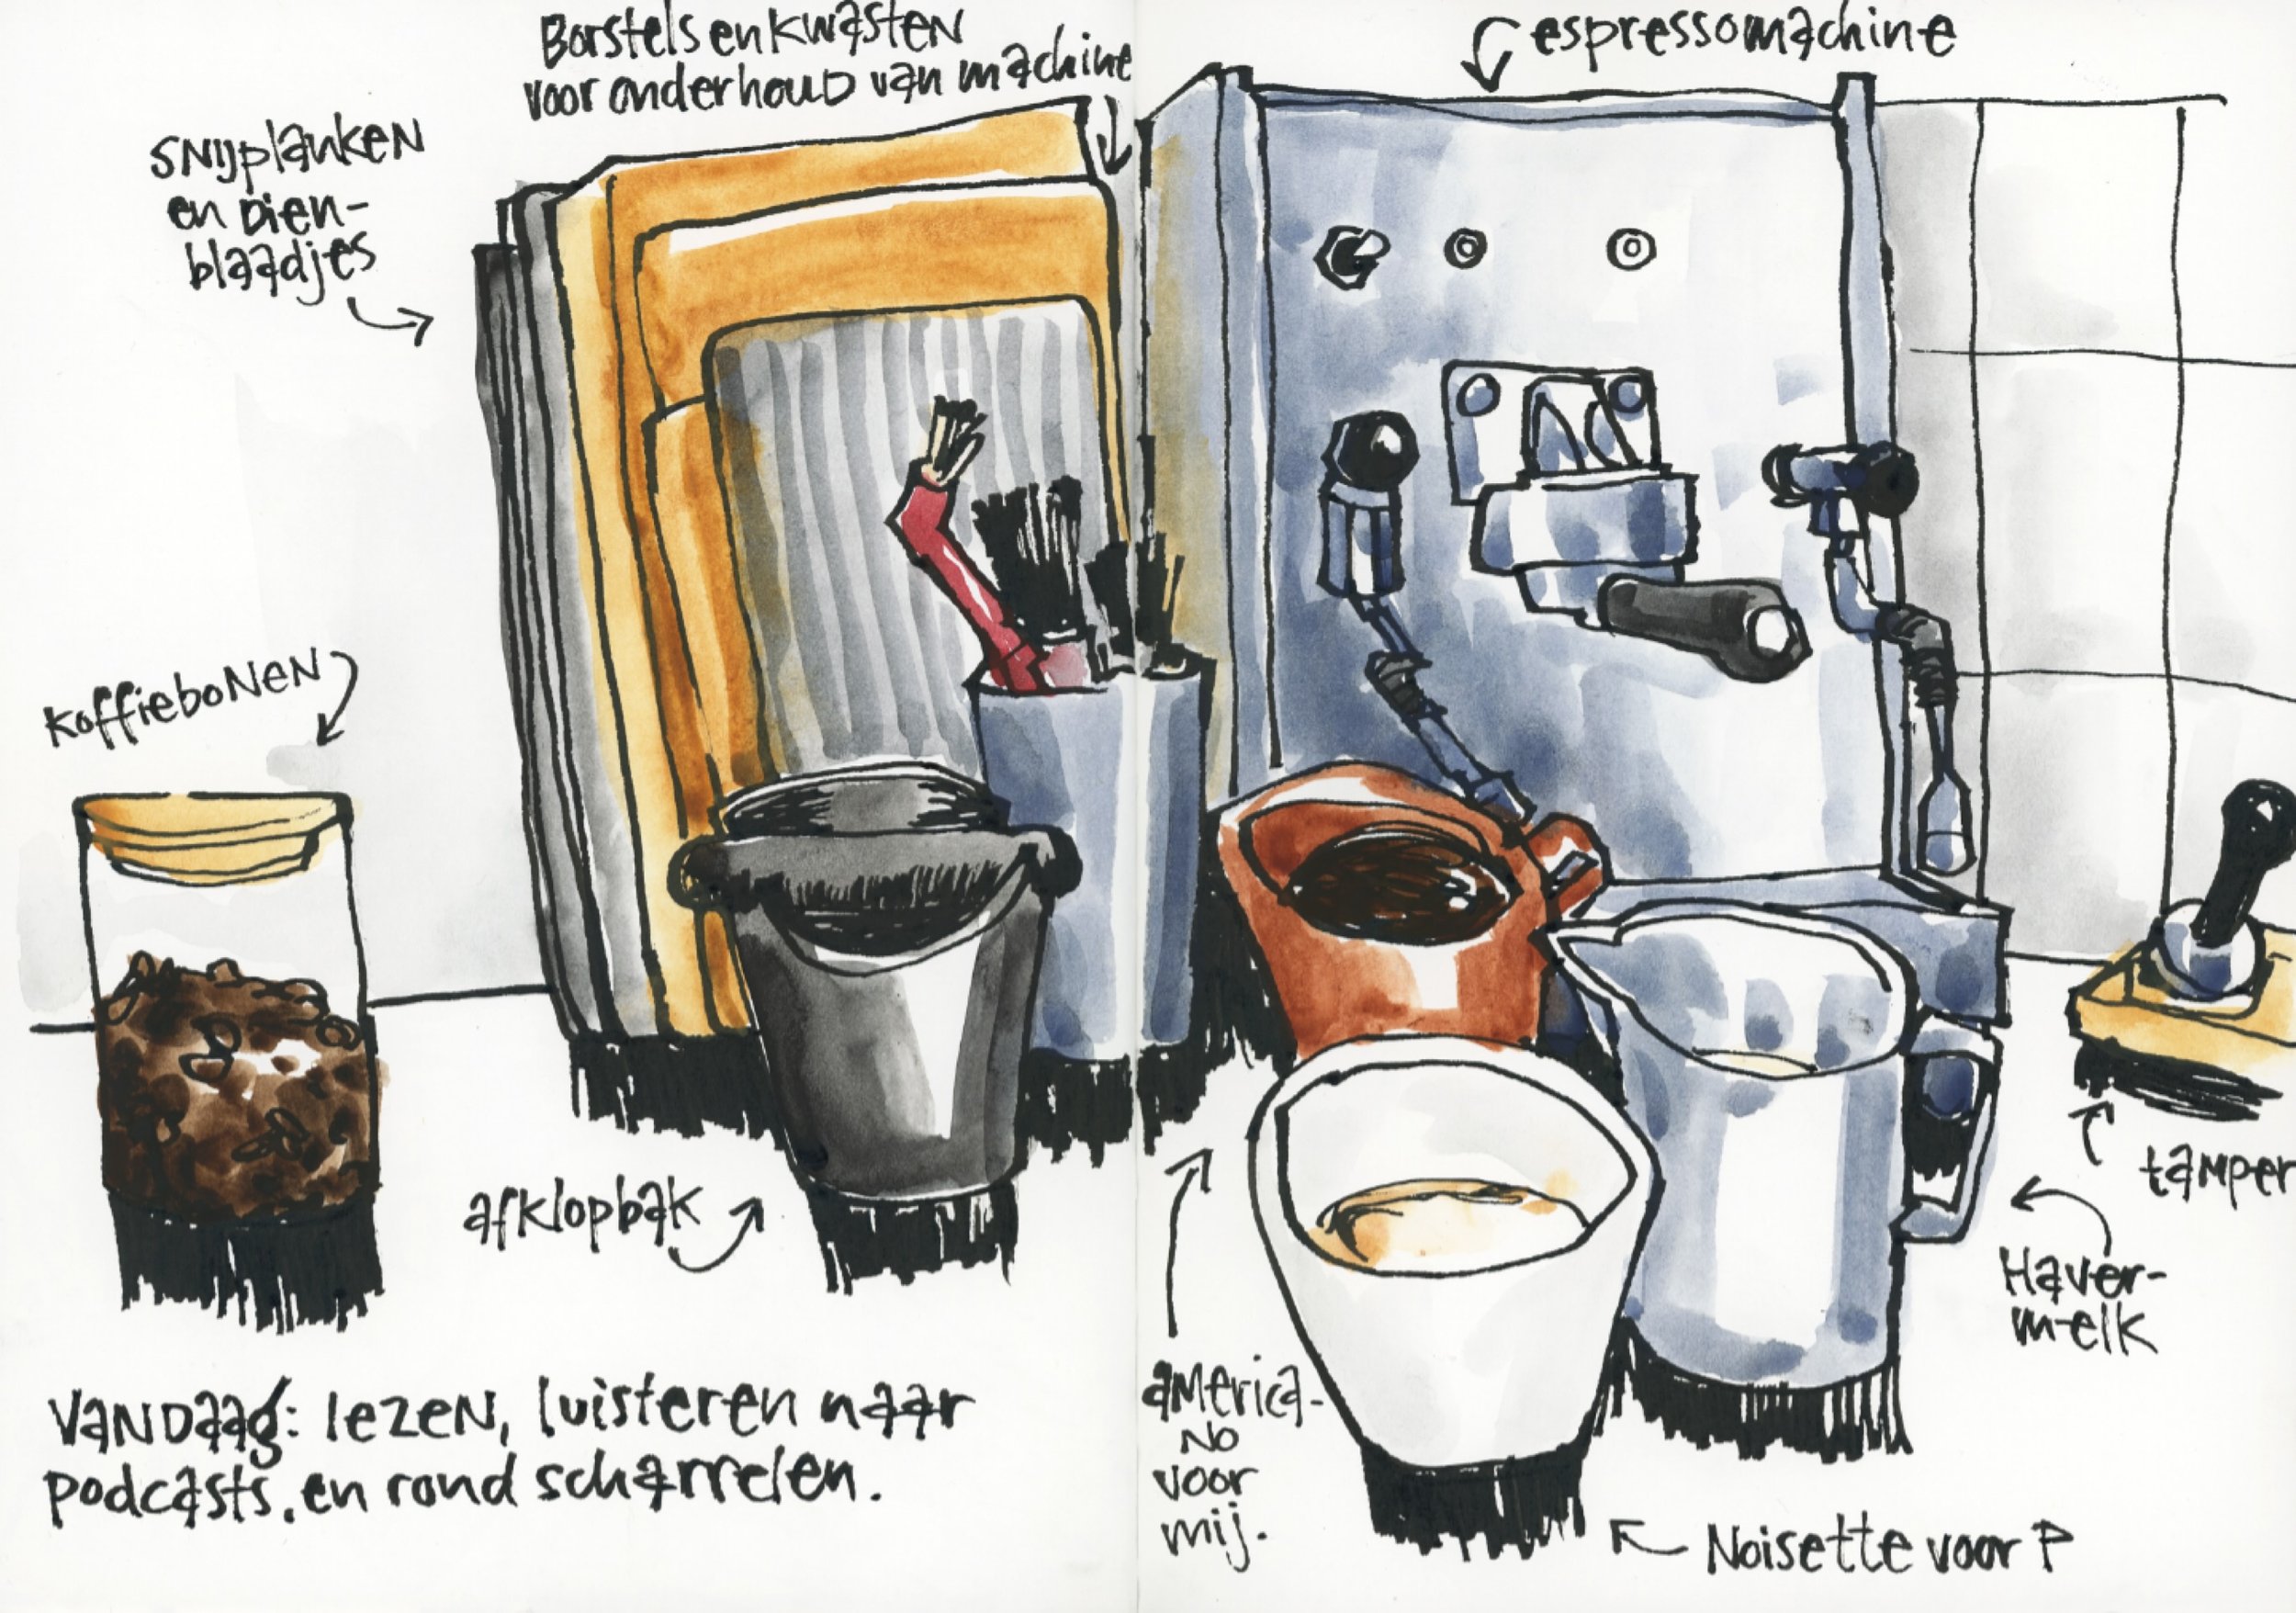 Borstels en kwasten
voor onderhoud van machine
espressomachine
snijplanken
en dien-
blaadjes
koffiebonen
afklopbak
tamper
Haver-
melk
america-
no
voor
mij.
Noisette voor P
Vandaag: lezen, luisteren naar
podcasts. en rond scharrelen.